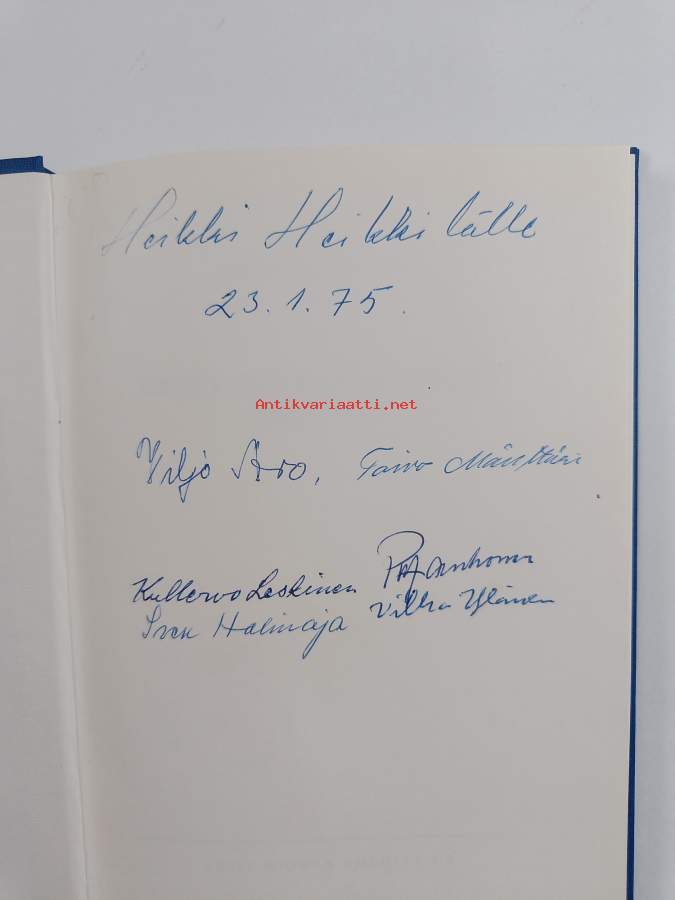 Heikki Heikkilälle
23.1.75.
Antikvariaatti.net
Viljo Aro, Toivo Mänttäri
Kullervo Leskinen
Sven Halinoja Vilho Ylänen